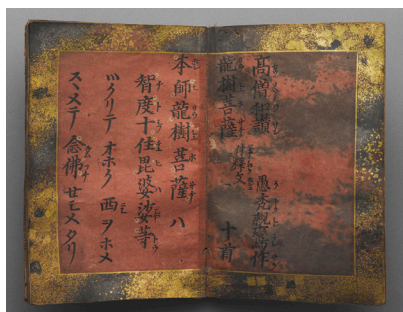 髙僧和讃 愚禿親鸞作
龍樹菩薩 付釋文 十首
本師龍樹菩薩ハ
智度十住毘婆娑等
ツクリテオホク西ヲホメ
スヽメテ念佛セシメタリ